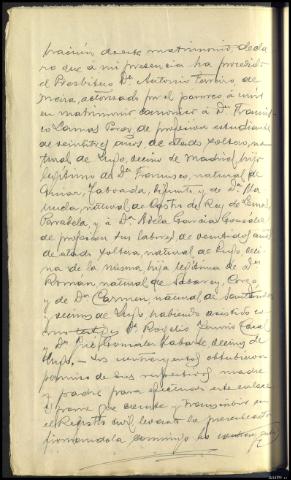 bración de este matrimonio, decla
ro que á mi presencia ha procedido
el Presbítero Dn. Antonio Terreiro de
Mera, autorizado por el párroco á unir
en matrimonio canónico á Dn. Francis
co Lamas Perez, de profesion estudiante
de veintitres años de edad, soltero, na
tural de Lugo, vecino de Madrid, hijo
legítimo de Dn. Francisco, natural de
Taboada, difunto, y de Dª Ma
nuela, natural de Castro de Rey de Lemos,
Paradela y á Dª. Adela García Gonzalez
de profesion sus labores, de veintidos años
de edad, soltera, natural de Lugo, veci
na de la misma, hija legítima de Dn.
Roman, natural de
y de Dª Carmen, natural de Santander
y vecinos de Lugo habiendo asistido co
mo testigos Dn. Rogelio
y Dn. Gonzalez Taboada vecinos de
Lugo. — Los contrayentes obtubieron
permiso de sus respectivos madre
y padre para efectuar este enlace
y para que acredite y transcribir en
el Registro civil levanto la presente acta
firmandola conmigo los contrayentes